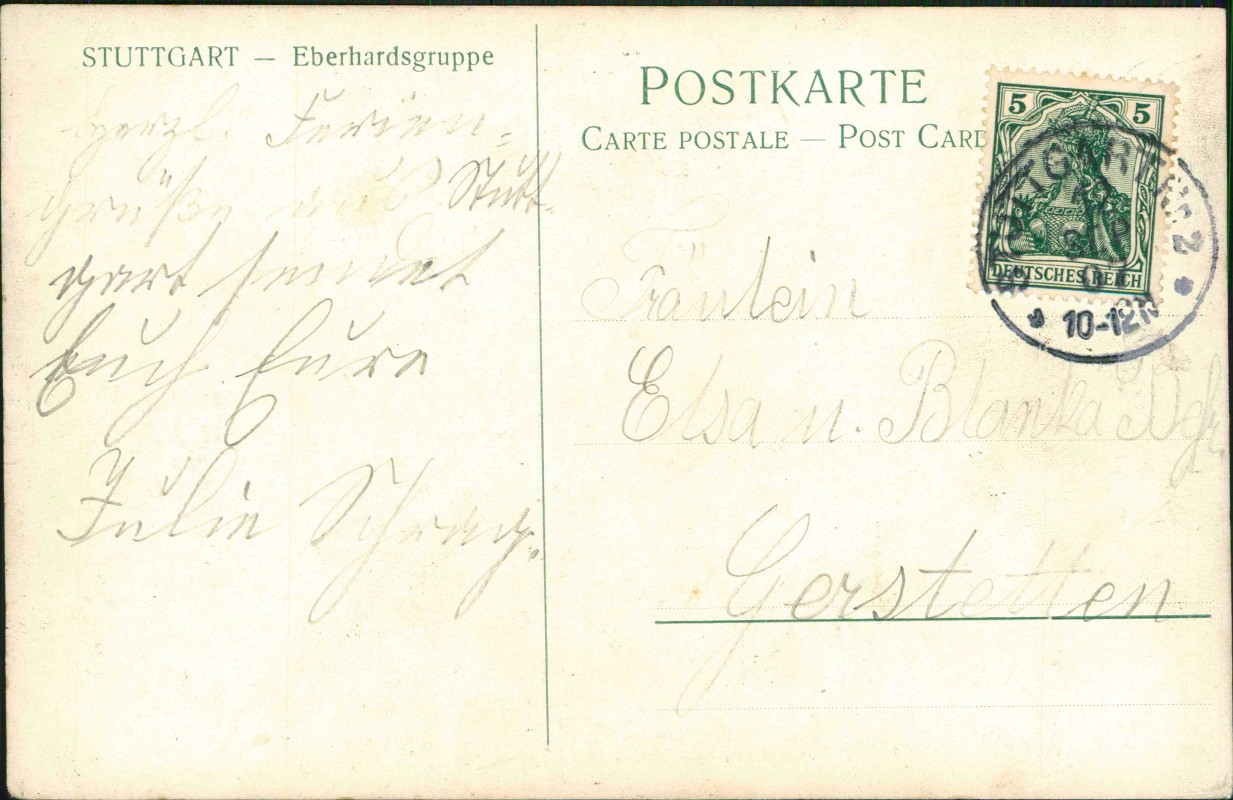 STUTTGART — Eberhardsgruppe
herzl. Ferien-
grüße aus Stutt-
gart sendet
Euch Eure
Julie Schrag.
POSTKARTE
CARTE POSTALE — POST CARD
5 5
DEUTSCHES REICH
STUTTGART 2
10-12N
Fräulein
Elsa u. Blanka
Gerstetten